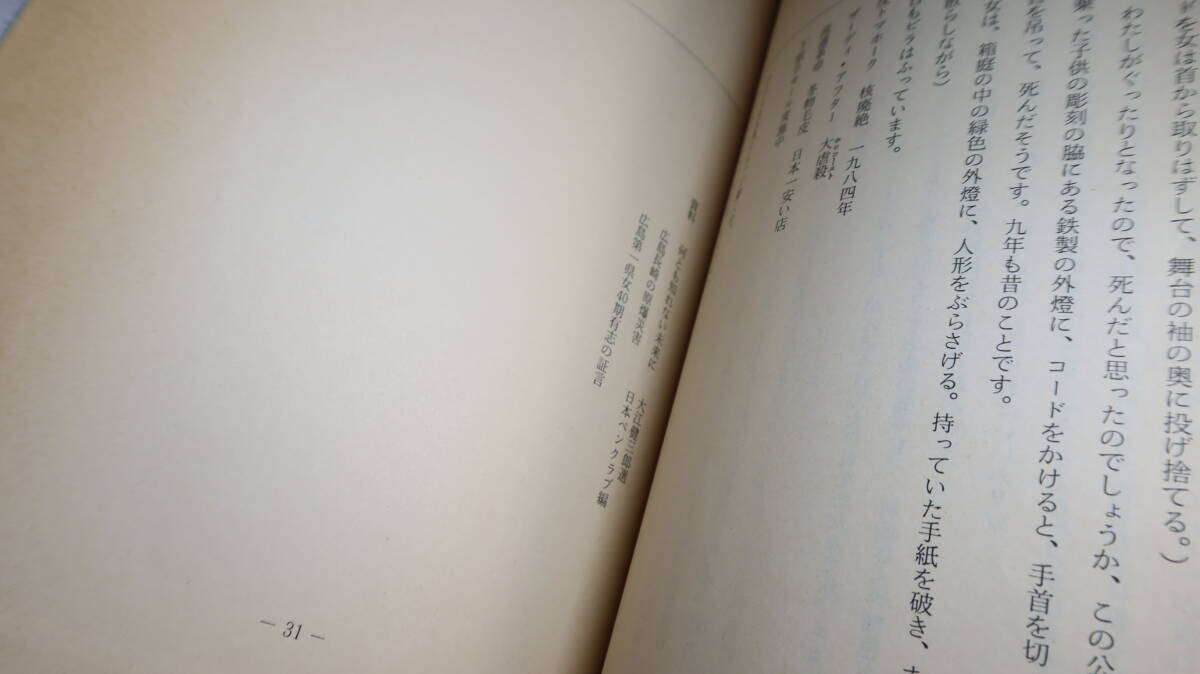 を女は首から取りはずして、舞台の袖の奥に投げ捨てる。)
わたしがぐったりとなったので、死んだと思ったのでしょうか、この公
乗った子供の彫刻の脇にある鉄製の外燈に、コードをかけると、手首を切
を吊って、死んだそうです。九年も昔のことです。
女は、箱庭の中の緑色の外燈に、人形をぶらさげる。持っていた手紙を破き、
散らしながら)
もビラはふっています。
トマホーク 核廃絶 一九八四年
ザ・デイ・アフター 大虐殺
冬物毛皮 日本一安い店
資料 何とも知れない未来に 大江健三郎選
広島長崎の原爆災害 日本ペンクラブ編
広島第一県女40期有志の証言
— 31 —